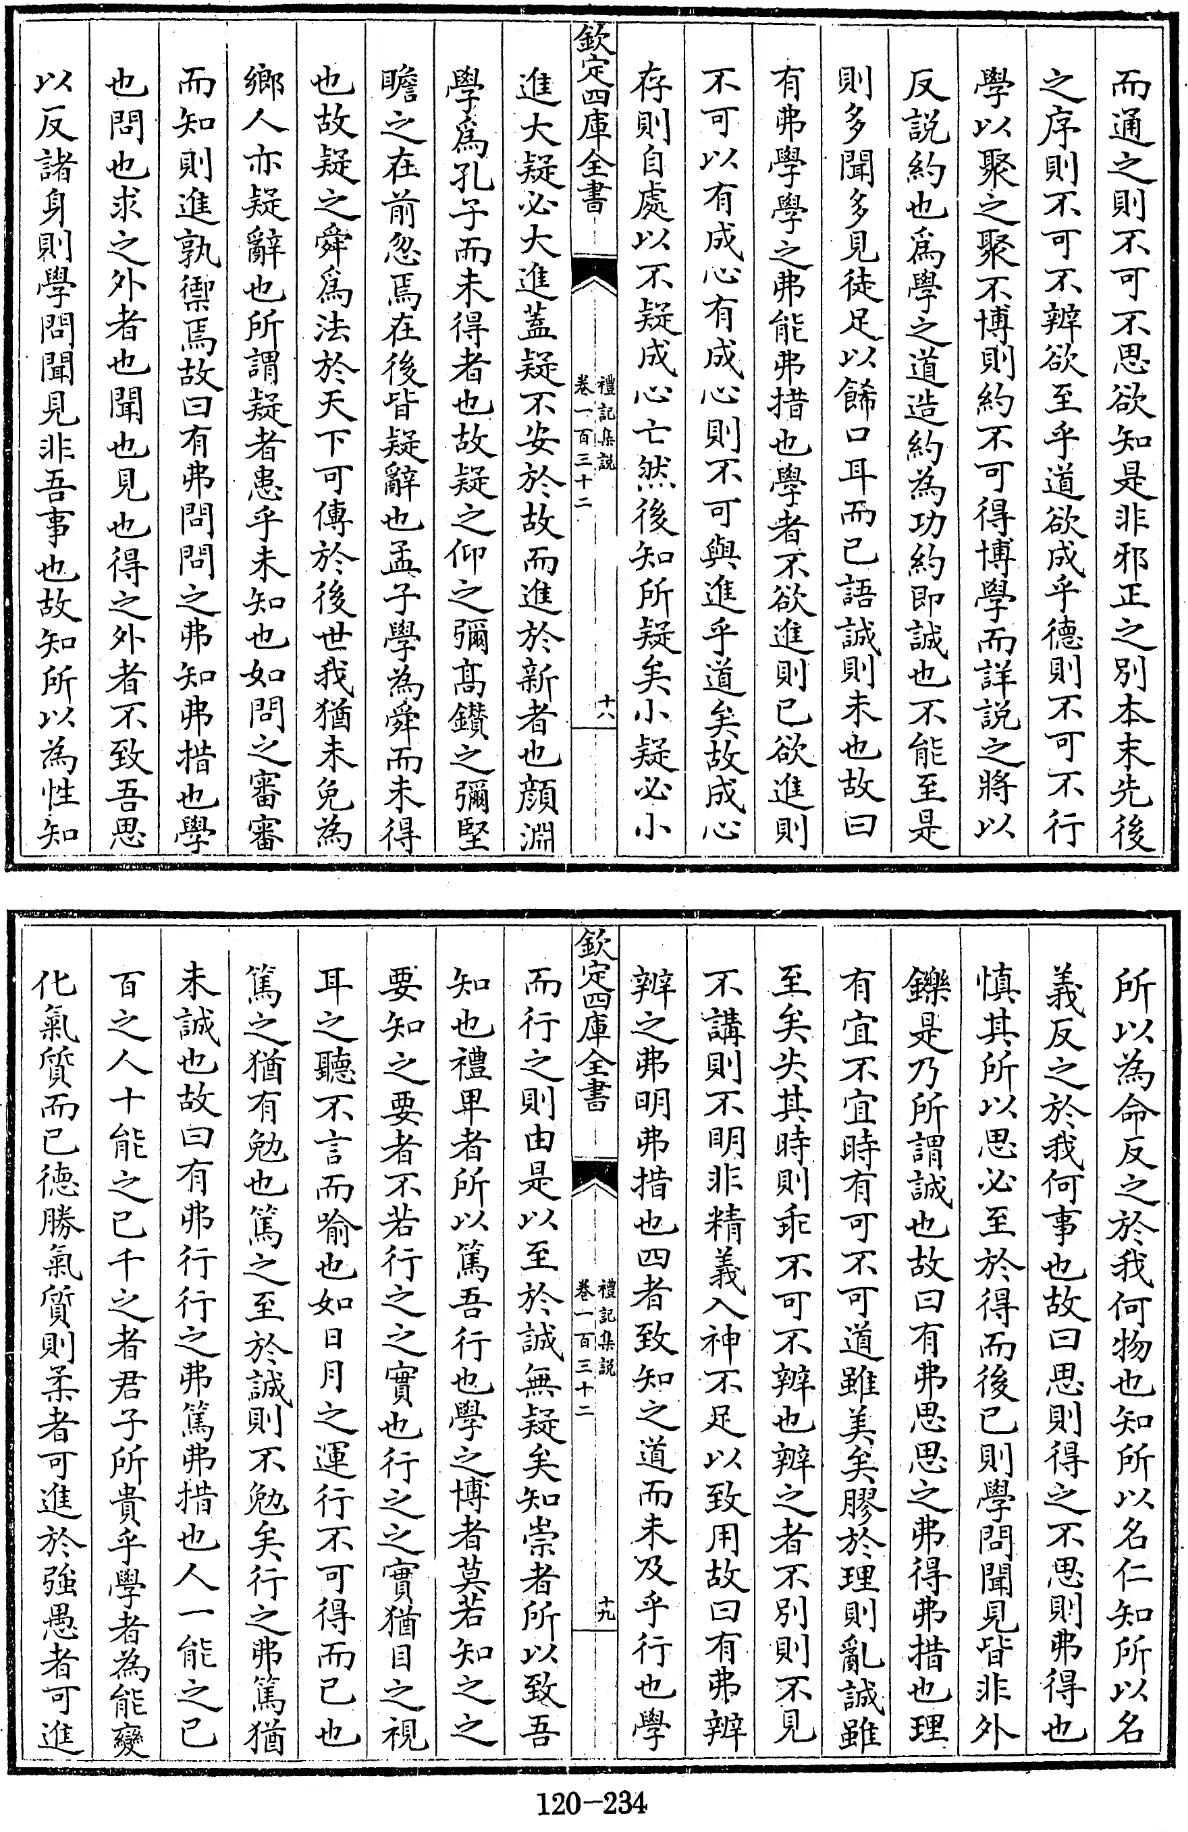 而通之則不可不思欲知是非邪正之別本末先後
之序則不可不辨欲至乎道欲成乎德則不可不行
學以聚之聚不博則約不可得博學而詳說之將以
反說約也爲學之道造約為功約即誠也不能至是
則多聞多見徒足以餙口耳而已語誠則未也故曰
有弗學學之弗能弗措也學者不欲進則已欲進則
不可以有成心有成心則不可與進乎道矣故成心
存則自處以不疑成心亡然後知所疑矣小疑必小
欽定四庫全書
禮記集說
卷一百三十二
十八
進大疑必大進蓋疑不安於故而進於新者也顏淵
學爲孔子而未得者也故疑之仰之彌髙鑚之彌堅
瞻之在前忽焉在後皆疑辭也孟子學為舜而未得
也故疑之舜爲法於天下可傳於後世我猶未免為
鄉人亦疑辭也所謂疑者患乎未知也如問之審審
而知則進孰禦焉故曰有弗問問之弗知弗措也學
也問也求之外者也聞也見也得之外者不致吾思
以反諸身則學問聞見非吾事也故知所以為性知
所以為命反之於我何物也知所以名仁知所以名
義反之於我何事也故曰思則得之不思則弗得也
慎其所以思必至於得而後已則學問聞見皆非外
鑠是乃所謂誠也故曰有弗思思之弗得弗措也理
有宜不宜時有可不可道雖美矣膠於理則亂誠雖
至矣失其時則乖不可不辨也辨之者不別則不見
不講則不明非精義入神不足以致用故曰有弗辨
辨之弗明弗措也四者致知之道而未及乎行也學
欽定四庫全書
禮記集說
卷一百三十二
十九
而行之則由是以至於誠無疑矣知崇者所以致吾
知也禮卑者所以篤吾行也學之博者莫若知之之
要知之要者不若行之之實也行之之實猶目之視
耳之聽不言而喻也如日月之運行不可得而已也
篤之猶有勉也篤之至於誠則不勉矣行之弗篤猶
未誠也故曰有弗行行之弗篤弗措也人一能之已
百之人十能之已千之者君子所貴乎學者為能變
化氣質而已德勝氣質則柔者可進於強愚者可進
120-234